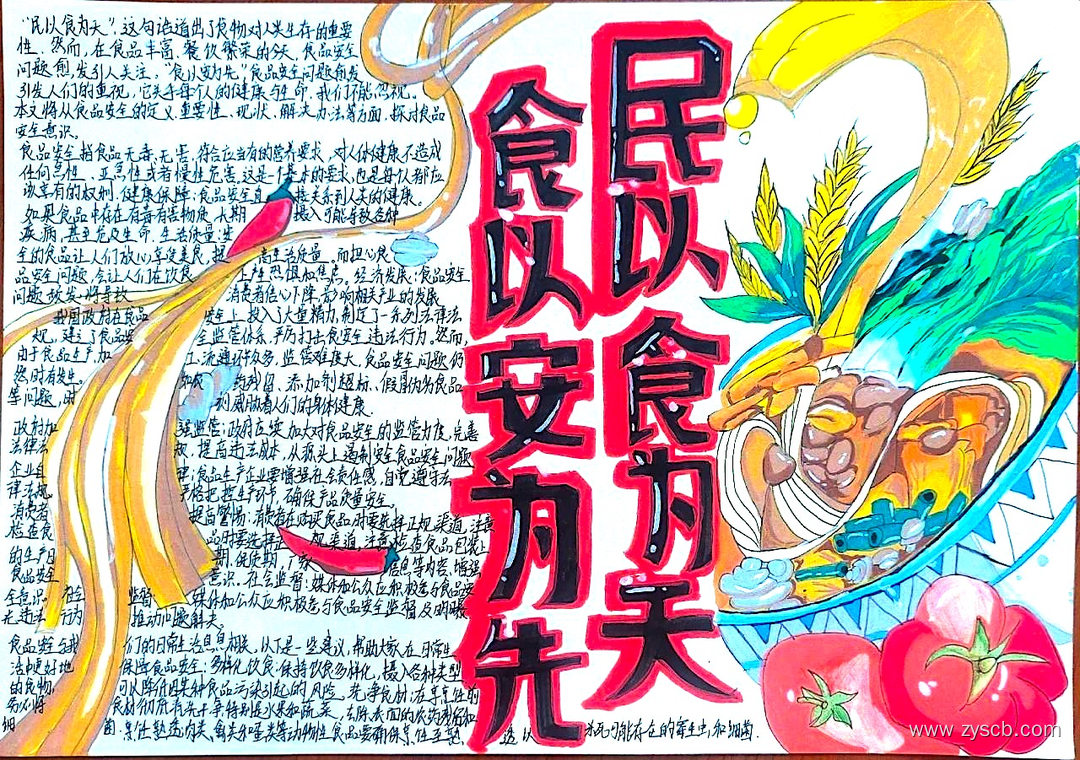 民以食为天
食以安为先
"民以食为天",这句话道出了食物对人类生存的重要
性。然而,在食品丰富、餐饮繁荣的今天,食品安全
问题愈发引人关注,"食以安为先"食品安全问题愈发
引发人们的重视,它关乎每个人的健康与生命,我们不能忽视。
本文将从食品安全的定义、重要性、现状、解决办法等方面,探讨食品
安全意识。
食品安全指食品无毒、无害,符合应当有的营养要求,对人体健康不造成
任何急性、亚急性或者慢性危害,这是一个基本的要求,也是每个人都应
该享有的权利。健康保障:食品安全直接关系到人类的健康。
如果食品中存在有毒有害物质,长期摄入可能导致各种
疾病,甚至危及生命。生活质量:安
全的食品让人们放心享受美食,提高生活质量。而担心食
品安全问题,会让人们在饮食上产生恐惧和焦虑。经济发展:食品安全
问题频发,将导致消费者信心下降,影响相关产业的发展
我国政府在食品安全上投入了大量精力,制定了一系列法律法
规,建立了食品安全监管体系,严厉打击食品安全违法行为。然而,
由于食品生产、加工、流通环节众多,监管难度大,食品安全问题仍
然时有发生,如农药残留、添加剂超标、假冒伪劣食品
等问题,时刻威胁着人们的身体健康。
政府加强监管:政府应加大对食品安全的监管力度,完善
法律法规,提高违法成本,从源头上遏制安全食品安全问题
企业自律:食品生产企业要增强社会责任感,自觉遵守法
律法规,严格把控生产环节,确保产品质量安全。
消费者提高警惕:消费者在购买食品时要选择正规渠道,注意
检查食品时要选择正规渠道,注意检查食品包装上
的生产日期、保质期、厂家信息等内容,增强
食品安全意识。社会监督:媒体和公众应积极参与食品安
全意识。社会监督:媒体和公众应积极参与食品安全监督及时曝
光违法行为,推动问题解决。
食品安全与我们的日常生活息息相关,以下是一些建议,帮助大家在日常生
活中更好地保障食品安全:多样化饮食:保持饮食多样化,摄入各种类型
的食物,可以降低因某种食品污染引起的风险。洗净食材:在烹饪前
务必将食材彻底清洗干净,特别是水果和蔬菜,去除表面的农药残留和
细菌。烹饪熟透:肉类、禽类和蛋类等动物性食品要确保烹饪至熟透以杀死可能存在的寄生虫和细菌。
www.zyscb.com